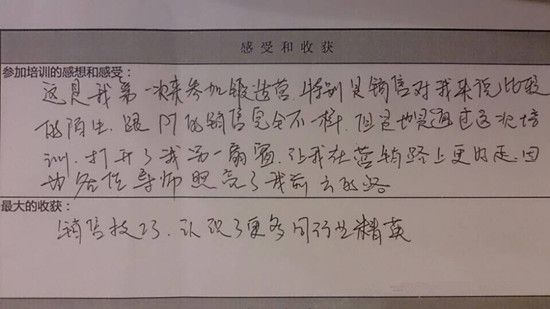 感受和收获
参加培训的感想和感受:
这是我第一次来参加锻造营.特别是销售对我来说比较
的陌生.跟门的销售完全不一样.但是也是通过这次培
训.打开了我另一扇窗.让我在营销路上更好走.因
为各位导师照亮了我前方的路
最大的收获:
销售技巧、认识了更多同行业精英